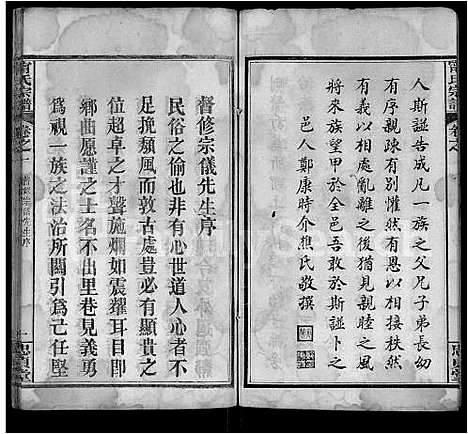 人斯諡告成凡一族之父兄子弟長幼
有序親疎有別懽然有恩以相接秩然
有義以相處亂離之後猶見親睦之風
將來族望甲於全邑吾敢於斯諡卜之
邑人鄭康時介熊氏敬撰
督修宗儀先生序
民俗之偷也非有心世道人心者不
足挽頽風而敦古處豈必有顯貴之
位卓上之才聲施爛如震耀耳目即
鄉曲愿謹之士名不出里巷見義勇
為視一族之法治所關引為己任堅
甯氏宗譜
卷之一